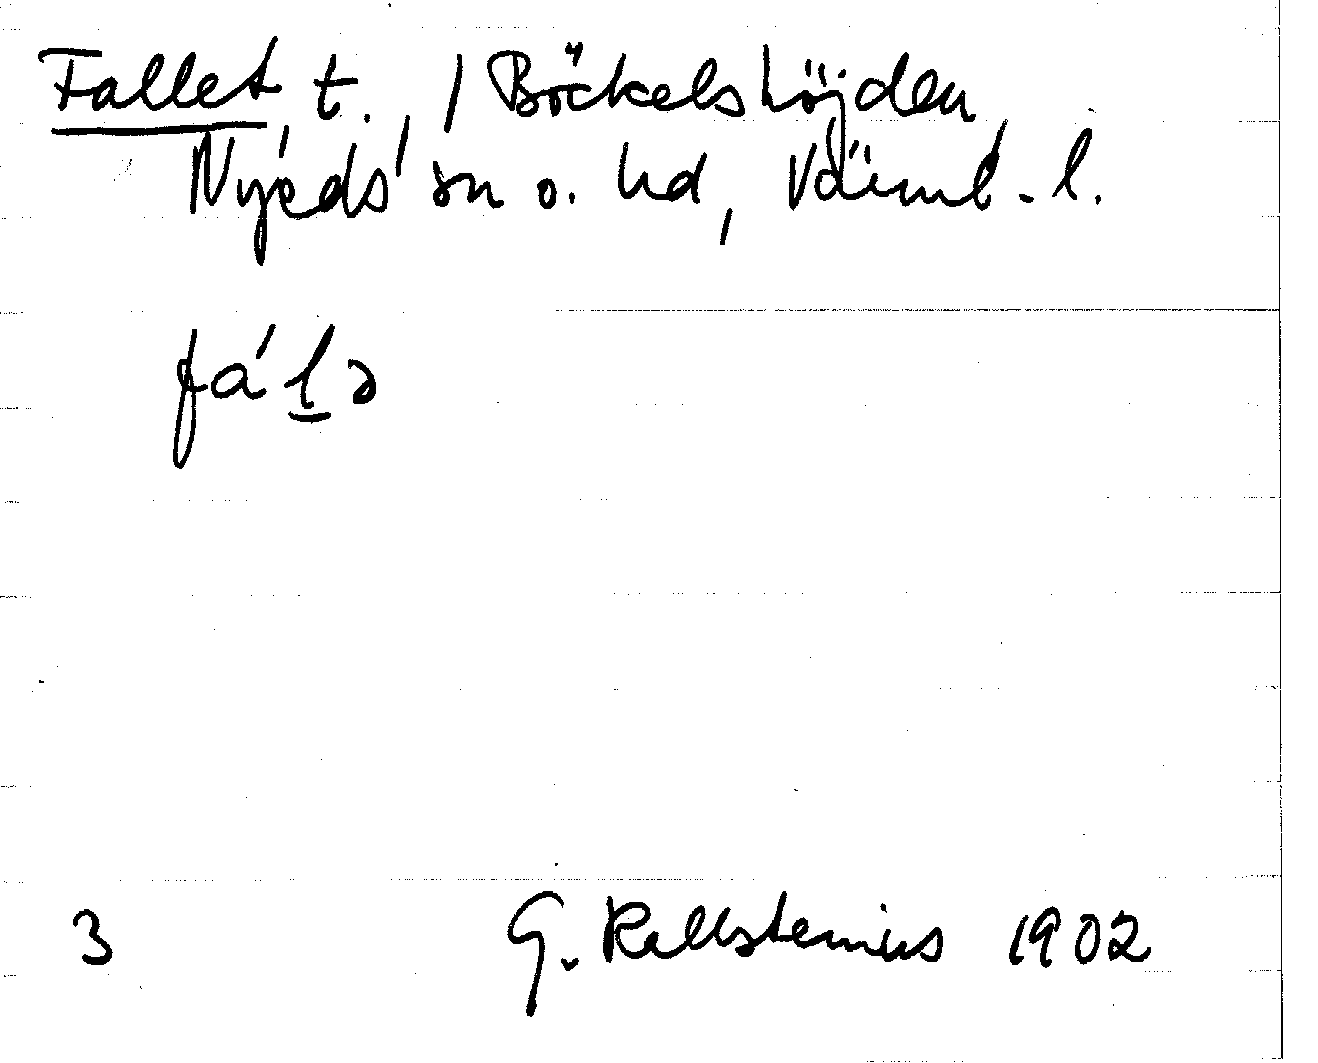 Fallet, t., / Böckelshöjden,
Nyeds sn o. hd, Värml. l.
fá'l̲ə
3 G. Kallstenius 1902